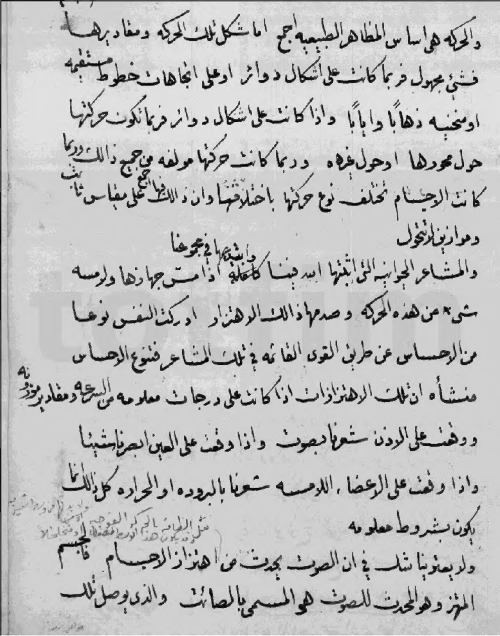 والحركه هي اساس المظاهر الطبيعيه اجمع اما شكل تلك الحركه ومقاديرها
فشئ مجهول فربما كانت على اشكال دوائر او على اتجاهات خطوط مستقيمه
او منحنيه ذهابًا وايابًا واذا كانت على اشكال دوائر فربما تكون حركتها
حول محورها او حول غيره وربما كانت حركتها مولفه من جميع ذالك وربما
كانت الاجسام تختلف نوع حركتها باختلافها وان ذالك على مقياس ثابت
وموازين لا تتحول
والمشاعر الحيوانيه التي اثبتها فينا كاملة اذا مس جهازها ولامسه
شىء من هذه الحركه وصدمها ذالك الاهتزاز ادركت النفس نوعا
من الاحساس عن طريق القوى القائمه في تلك المشاعر فتنوع الاحساس
منشأه ان تلك الاهتزازات اذا كانت على درجات معلومه من السرعه ومقادير موزونه
ووقعت على الاذن شعرنا بصوت واذا وقعت على العين ابصرنا شيئا
واذا وقعت على الاعضاء اللامسه شعرنا بالبروده او الحراره كل ذالك انما
يكون بشروط معلومه
ولا يعترينا شك في ان الصوت يحدث من اهتزاز الاجسام فالجسم
المهتز وهو المحدث للصوت هو المسمى بالصائت والذي يوصل تلك